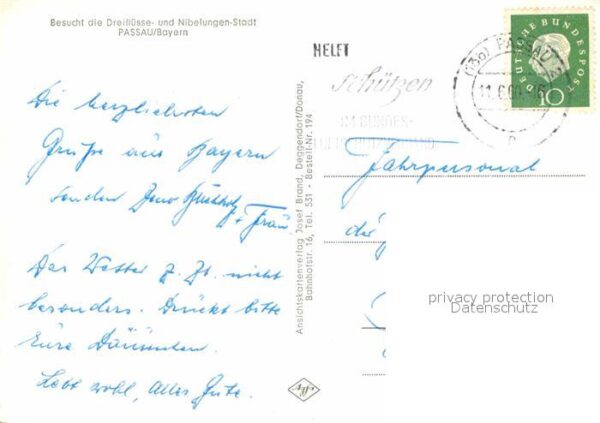 Besucht die Dreiflüsse- und Nibelungen-Stadt
PASSAU/Bayern
Die herzlichsten
Grüße aus Bayern
senden
+ Frau
Das Wetter z. Zt. nicht
besonders. Drückt bitte
Eure Däumchen.
Lebt wohl, Alles Gute.
Ansichtskartenverlag Josef Brand, Deggendorf/Donau,
Bahnhofstr. 16, Tel. 531 - Bestell-Nr. 194
HELFT
schützen
IM BUNDES-
(13b) PASSAU 2
DEUTSCHE BUNDESPOST
10
Fahrpersonal
der
privacy protection
Datenschutz